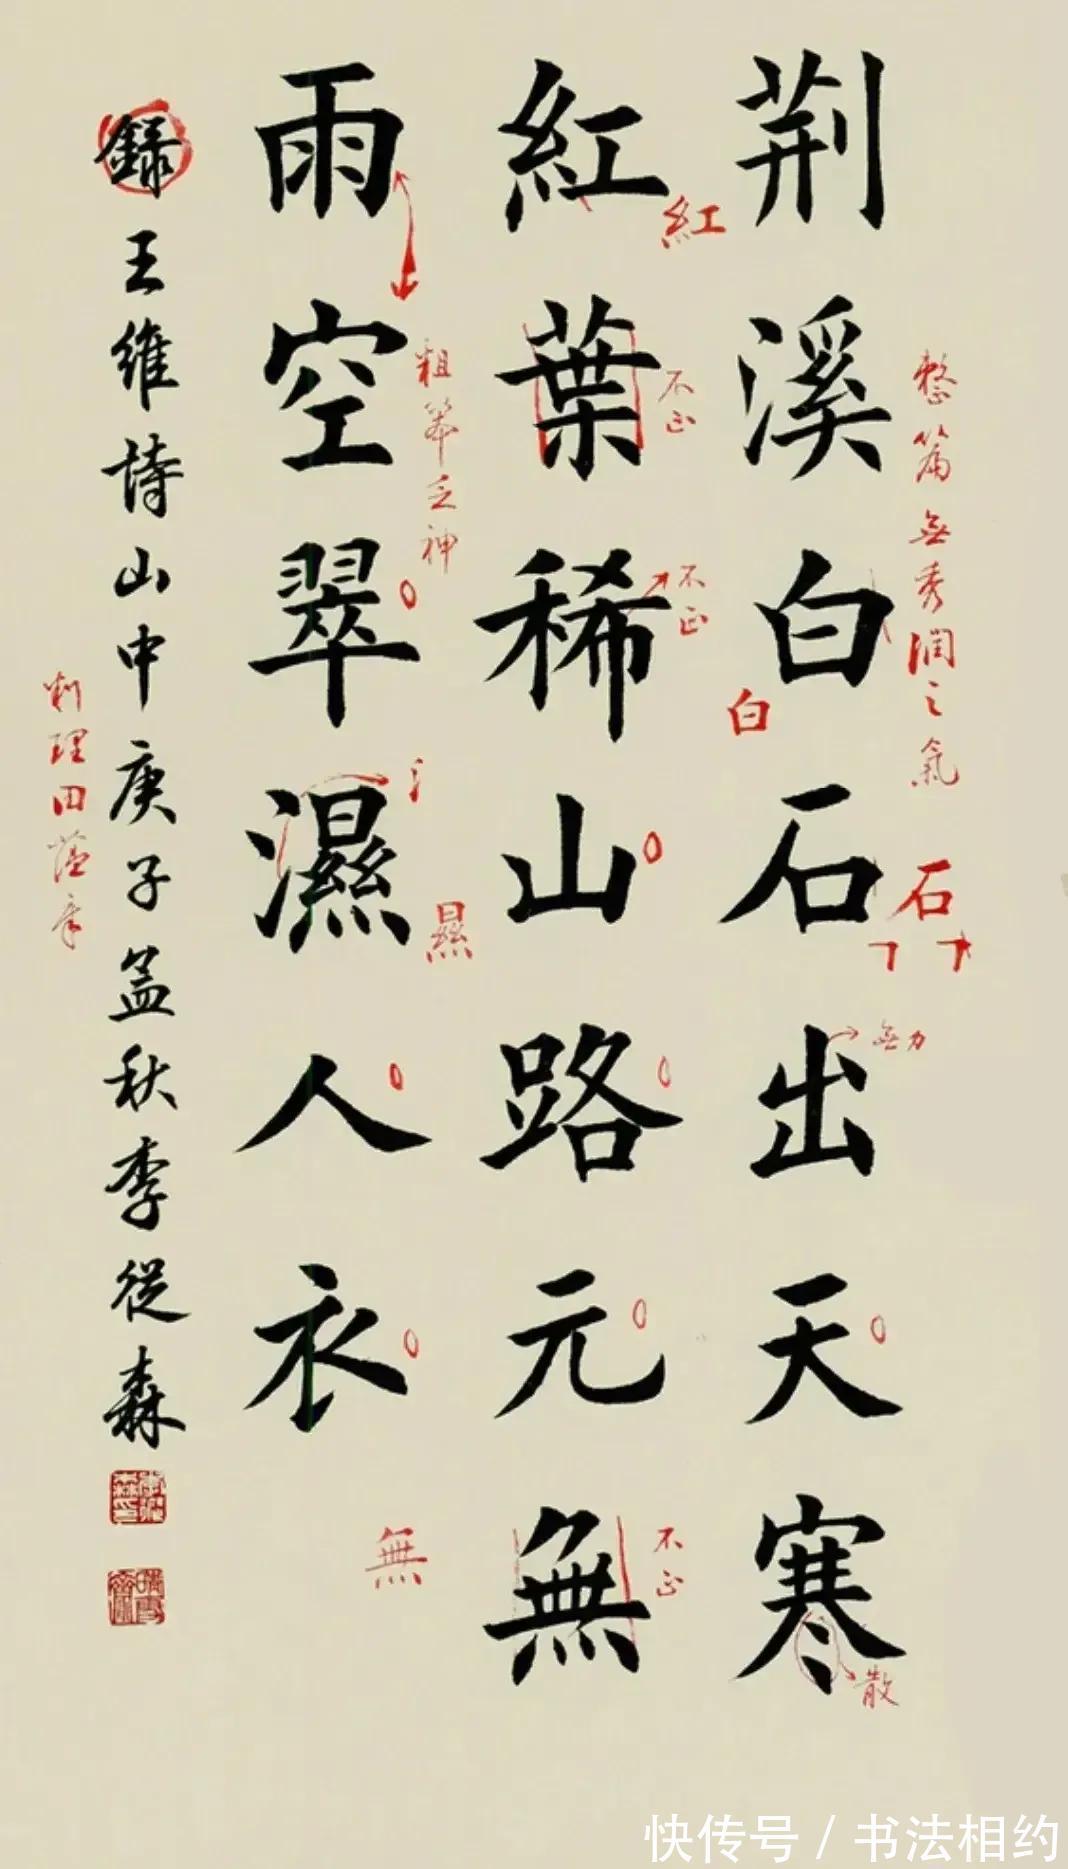 荆溪白石出天寒
紅葉稀山路元無
雨空翠濕人衣
錄王維詩山中庚子孟秋李從森
整篇無秀潤之氣
紅
不正
不正
白
石
無力
散
不正
無
粗笨乏神
㬎
快传号 / 书法相约